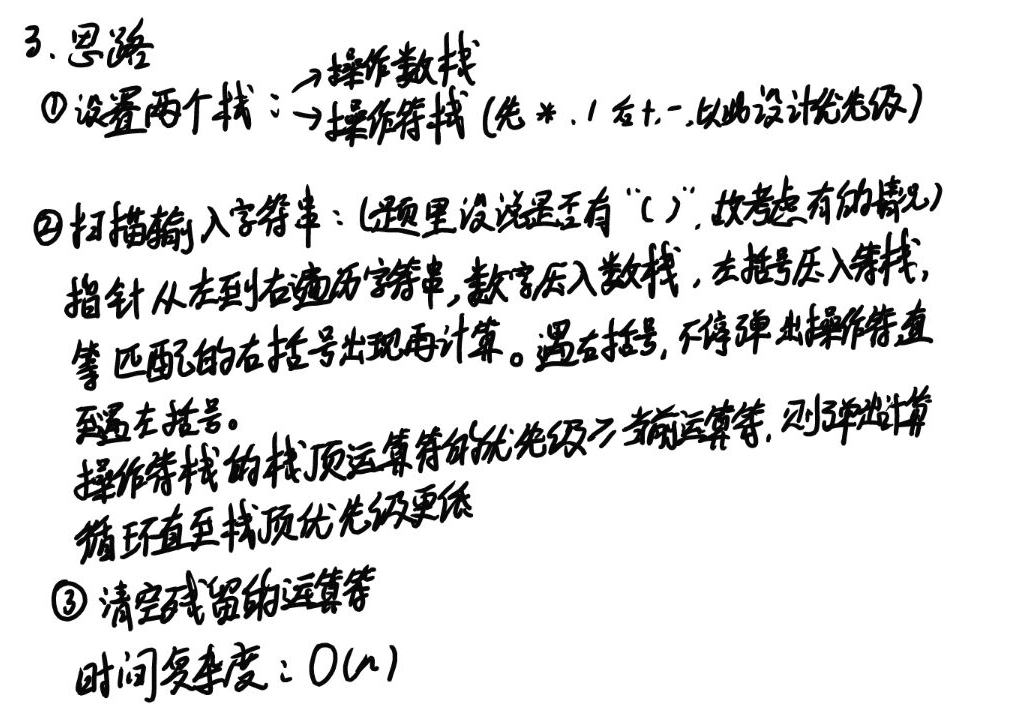 3. 思路
①设置两个栈：→操作数栈
→操作符栈（先*、/ 后+、-，以此设计优先级）
②扫描输入字符串：（题里没说是否有“（）”，故考虑有的情况）
指针从左到右遍历字符串，数字压入数栈，左括号压入符栈，
等匹配的右括号出现再计算。遇右括号，不停弹出操作符直
至遇左括号。
操作符栈的栈顶运算符的优先级≥当前运算符，则弹出计算
循环直至栈顶优先级更低
③清空残留的运算符
时间复杂度：O(n)